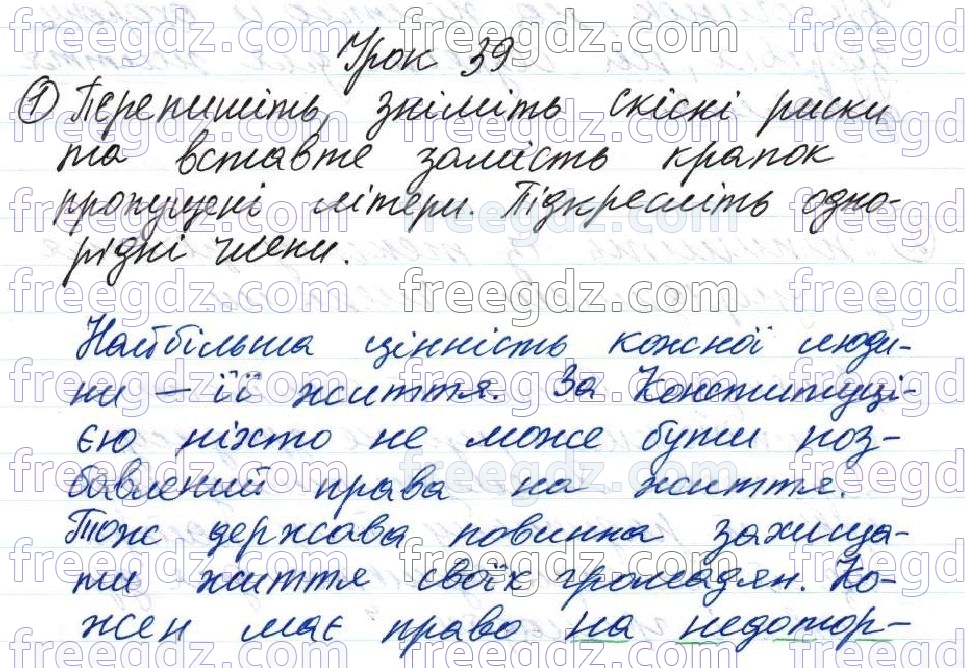 Урок 39
① Перепишіть, зніміть скісні риски
та вставте замість крапок
пропущені літери. Підкресліть одно-
рідні члени.
Найбільша цінність кожної люди-
ни – її життя. За Конституці-
єю ніхто не може бути поз-
бавлений права на життя.
Тож держава повинна захища-
ти життя своїх громадян. Ко-
жен має право на недотор-
freegdz.com